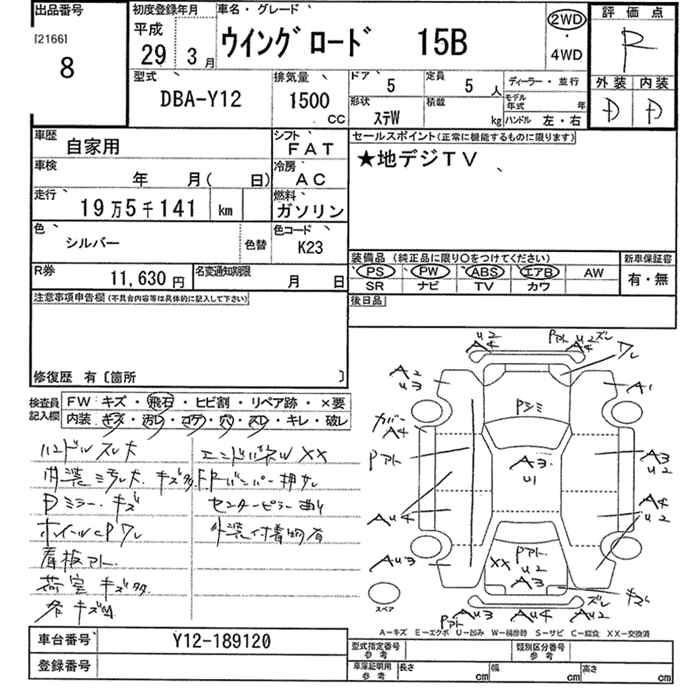 出品番号
[2166]
8
初度登録年月
平成
29年 3月
車名・グレード
ウイングロード 15B
2WD
・
4WD
評価点
R
外装 内装
D D
型式
DBA-Y12
排気量
1500
CC
ドア
5
定員
5人
ディーラー・並行
形状
ステW
積載
kg
モデル年式 年
ハンドル 左・右
車歴
自家用
シフト
FAT
車検
年 月( 日)
冷房
AC
走行
19万5千141 km
燃料
ガソリン
色
シルバー
色替
色コード
K23
R券
11,630円
名変通知期限
月 日
セールスポイント(正常に機能するものに限ります)
★地デジTV
装備品 (純正品に限り○をつけてください)
PS PW ABS エアB AW
SR ナビ TV カワ
新車保証書
有・無
後日品
注意事項申告欄(不具合内容等は具体的に記入して下さい)
修復歴 有〔箇所 〕
検査員
記入欄
FW キズ・飛石・ヒビ割・リペア跡・×要
内装・キズ・汚レ・コゲ・穴・スレ・キレ・破レ
ハンドルスレ大
エンドパネルXX
Dミラーキズ
センターピラー
外装付着物有
看板アト
荷室キズ多
U2
A4
Pアト
U2
A4
ズレ
ワレ
A2
U3
A1
カバー
A4
Pアト
Pシミ
A3
U1
A3
U2
AU4
A4
U2
AU3
Pアト
U2
XX
A3
キズ
スペア
Pアト
AU3
AU4
AU2
ズレ
A－キズ E－エクボ U－凹み W－補修跡 S－サビ C－腐食 XX－交換済
車台番号
Y12-189120
登録番号
型式指定番号
参考
類別区分番号
参考
車庫証明用
参考
長さ cm
幅 cm
高さ cm